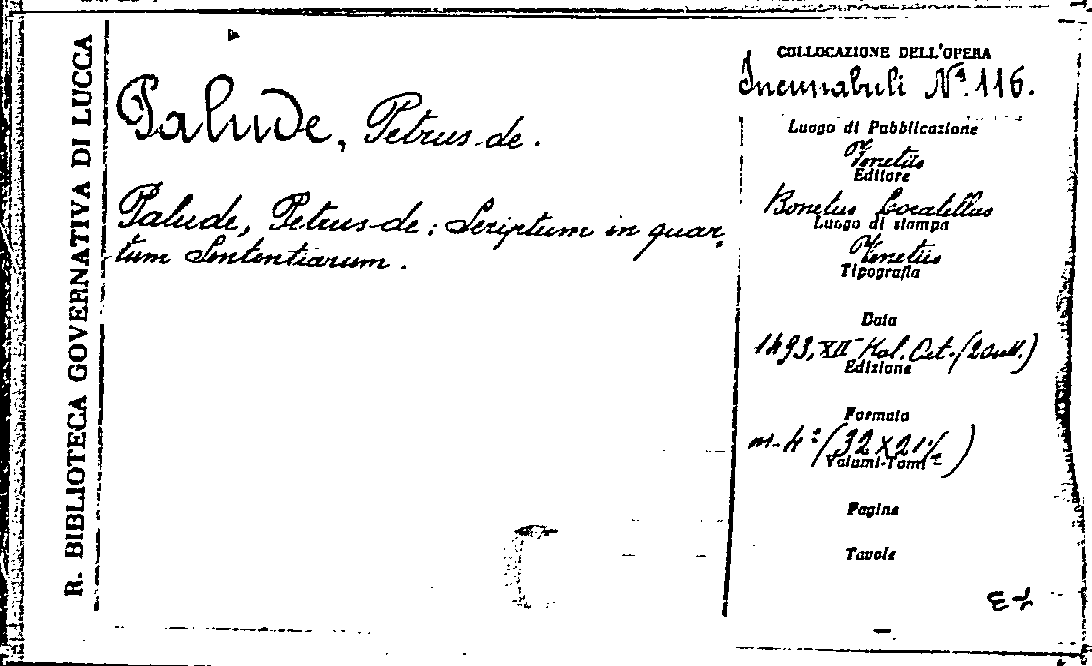 R. BIBLIOTECA GOVERNATIVA DI LUCCA
Palude, Petrus-de.
Palude, Petrus-de: Scriptum in quar-
tum Sententiarum.
COLLOCAZIONE DELL'OPERA
Incunabuli Nº. 116.
Luogo di Pubblicazione
Venetiis
Editore
Bonetus Locatellus
Luogo di stampa
Venetiis
Tipografia
Data
1493, XII Kal. Oct. (20 sett.)
Edizione
Formato
m-4º (32 X 21 ½)
Volumi-Tomi
Pagine
Tavole